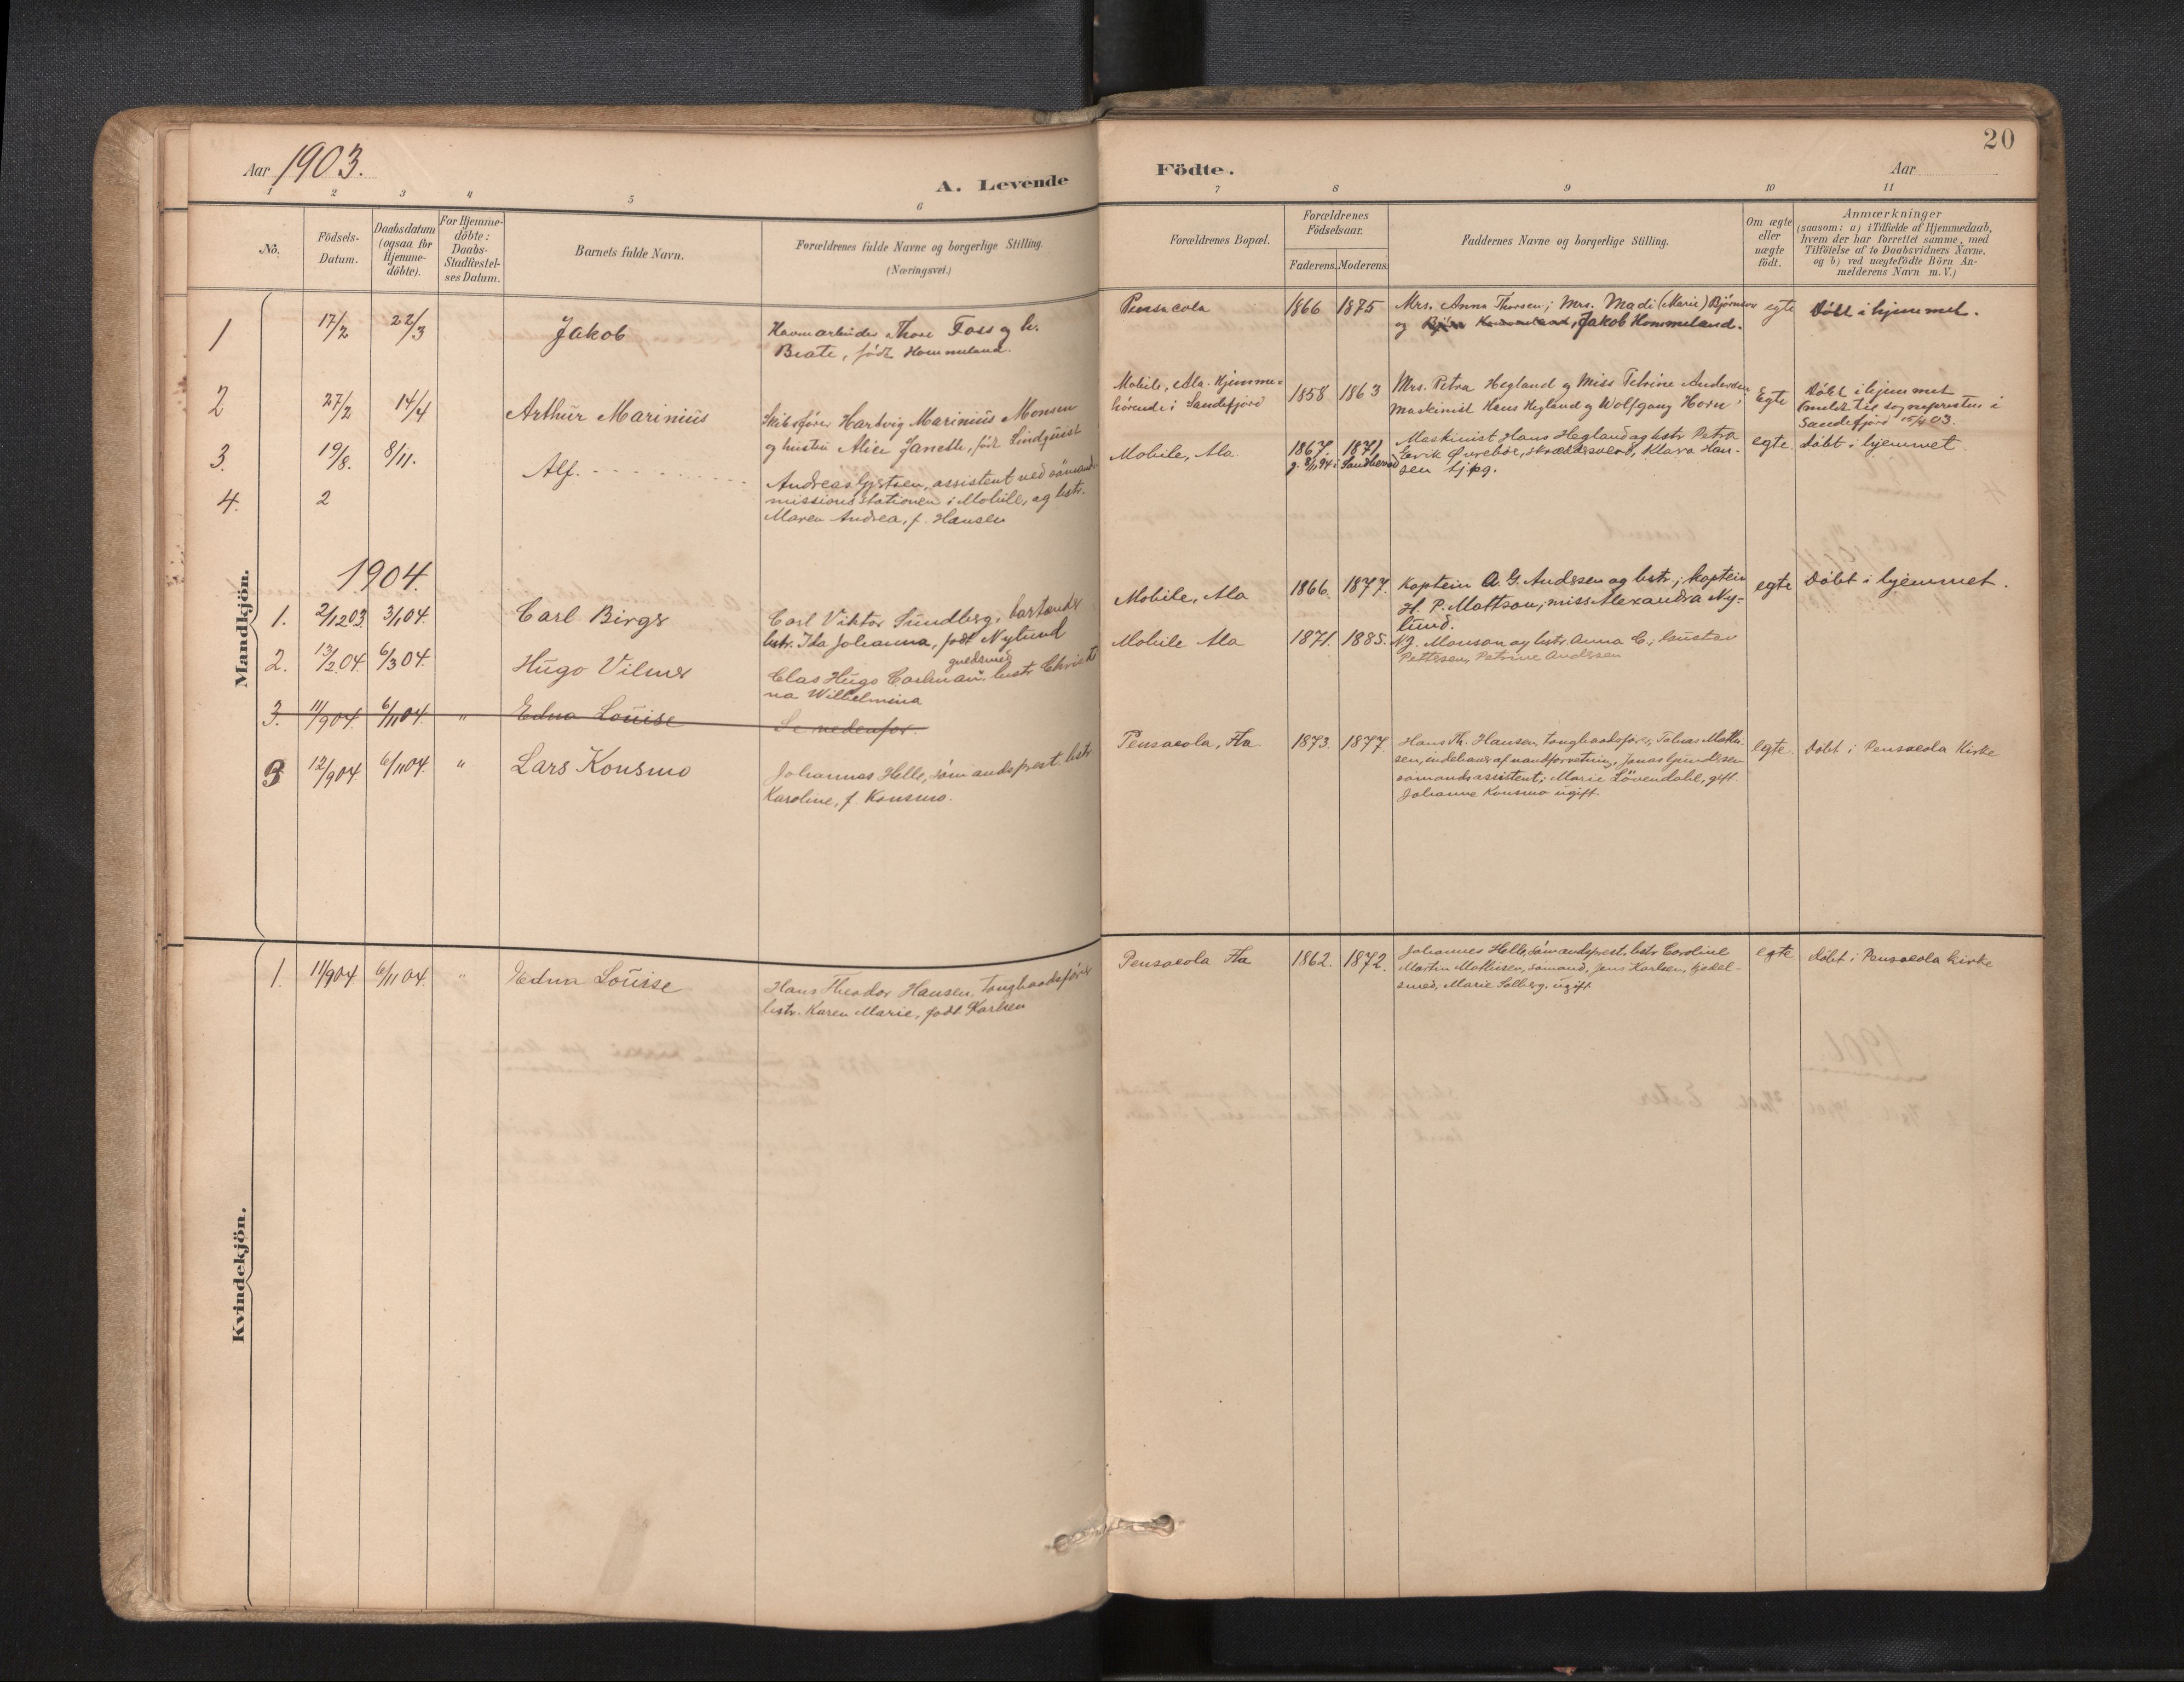 Aar 1903.
A. Levende
Födte.
Aar
20
1 2 3 4 5 6 7 8 9 10 11
No.
Födsels-Datum.
Daabsdatum (ogsaa for Hjemme-döbte).
For Hjemme-döbte: Daabs-Stadfæstel-ses Datum.
Barnets fulde Navn.
Forældrenes fulde Navne og borgerlige Stilling. (Næringsvei.)
Forældrenes Bopæl.
Forældrenes Födselsaar.
Faderens. Moderens.
Faddernes Navne og borgerlige Stilling.
Om ægte eller uægte födt.
Anmærkninger
(saasom: a) i Tilfælde af Hjemmedaab,
hvem der har forrettet samme, med
Tilföielse af to Daabsvidners Navne.
og b) ved uægtefödte Börn An-
melderens Navn m. V.)
Mandkjön.
1 17/2 22/3 Jakob
Havnearbeider Thore Foss og h.
Beate, født Hommeland.
Pensacola 1866 1875
Mrs. Anna Thorsen; Mrs. Madi (Marie) Bjørnsen
og Jakob Hommeland.
egte Døbt i hjemmet.
2 27/2 14/4 Arthur Marinius
Skibsfører Hartvig Marinius Monsen
og hustru Alice Janette, født Lindquist
Mobile, Ala. Hjemme-
hørende i Sandefjord
1858 1863
Mrs. Petra Hegland og Miss Petrine Andersen
Maskinist Hans Hegland og Wolfgang Horn;
Egte
Døbt i hjemmet
Anmeldt til sognepresten i
Sandefjord 15/4 03.
3. 19/8. 8/11. Alf.
Andreas Gjertsen, assistent ved sömands-
missions stationen i Mobile, og hstr.
Maren Andrea, f. Hansen
Mobile, Ala. 1867. 1871
Maskinist Hans Hegland og hstr Petra
Erik Øvrebøe, skræddersvend, Klara Han-
sen tjpg.
egte. Döbt i hjemmet
4. 2
1904.
1. 2/12 03. 3/1 04. Carl Birger
Carl Viktor Sundberg, bartender
hstr. Ida Johanna, født Nylund
Mobile, Ala 1866. 1877.
Kaptein A. G. Andersen og hstr.; kaptein
H. P. Mattson; miss Alexandra Ny-
lund.
egte Döbt i hjemmet.
2. 13/2 04. 6/3 04. Hugo Vilmer
guldsmed
Clas Hugo Carlman, hustr Christi
na Wilhelmina
Mobile Ala 1871. 1885.
N.J. Monson og hstr. Anna C.; Gustav
Pettersen, Petrine Andersen
3. 11/9 04. 6/11 04. " Edna Louise
Se nedenfor.
3 12/9 04 6/11 04. " Lars Konsmo
Johannes Helle, sömandsprest. hstr
Karoline, f. Konsmo.
Pensacola, Fla. 1873. 1877.
Hans Th. Hansen, tougbaadsfører, Tobias Mathi-
sen, indehaver af vandforretning, Jonas Gundersen
sömandsassistent; Marie Lövendahl, gift.
Johanne Konsmo ugift.
egte. Döbt i Pensacola Kirke
Kvindekjön.
1. 11/9 04 6/11 04. " Edna Louise
Hans Theodor Hansen, tougbaadsfører
hstr. Karen Marie, født Karlsen
Pensacola Fla 1862. 1872.
Johannes Helle, sömandsprest, hstr Caroline
Martin Mathisen, sömand, Jens Karlsen, kjedel-
smed, Marie Solberg, ugift
egte Döbt i Pensacola kirke